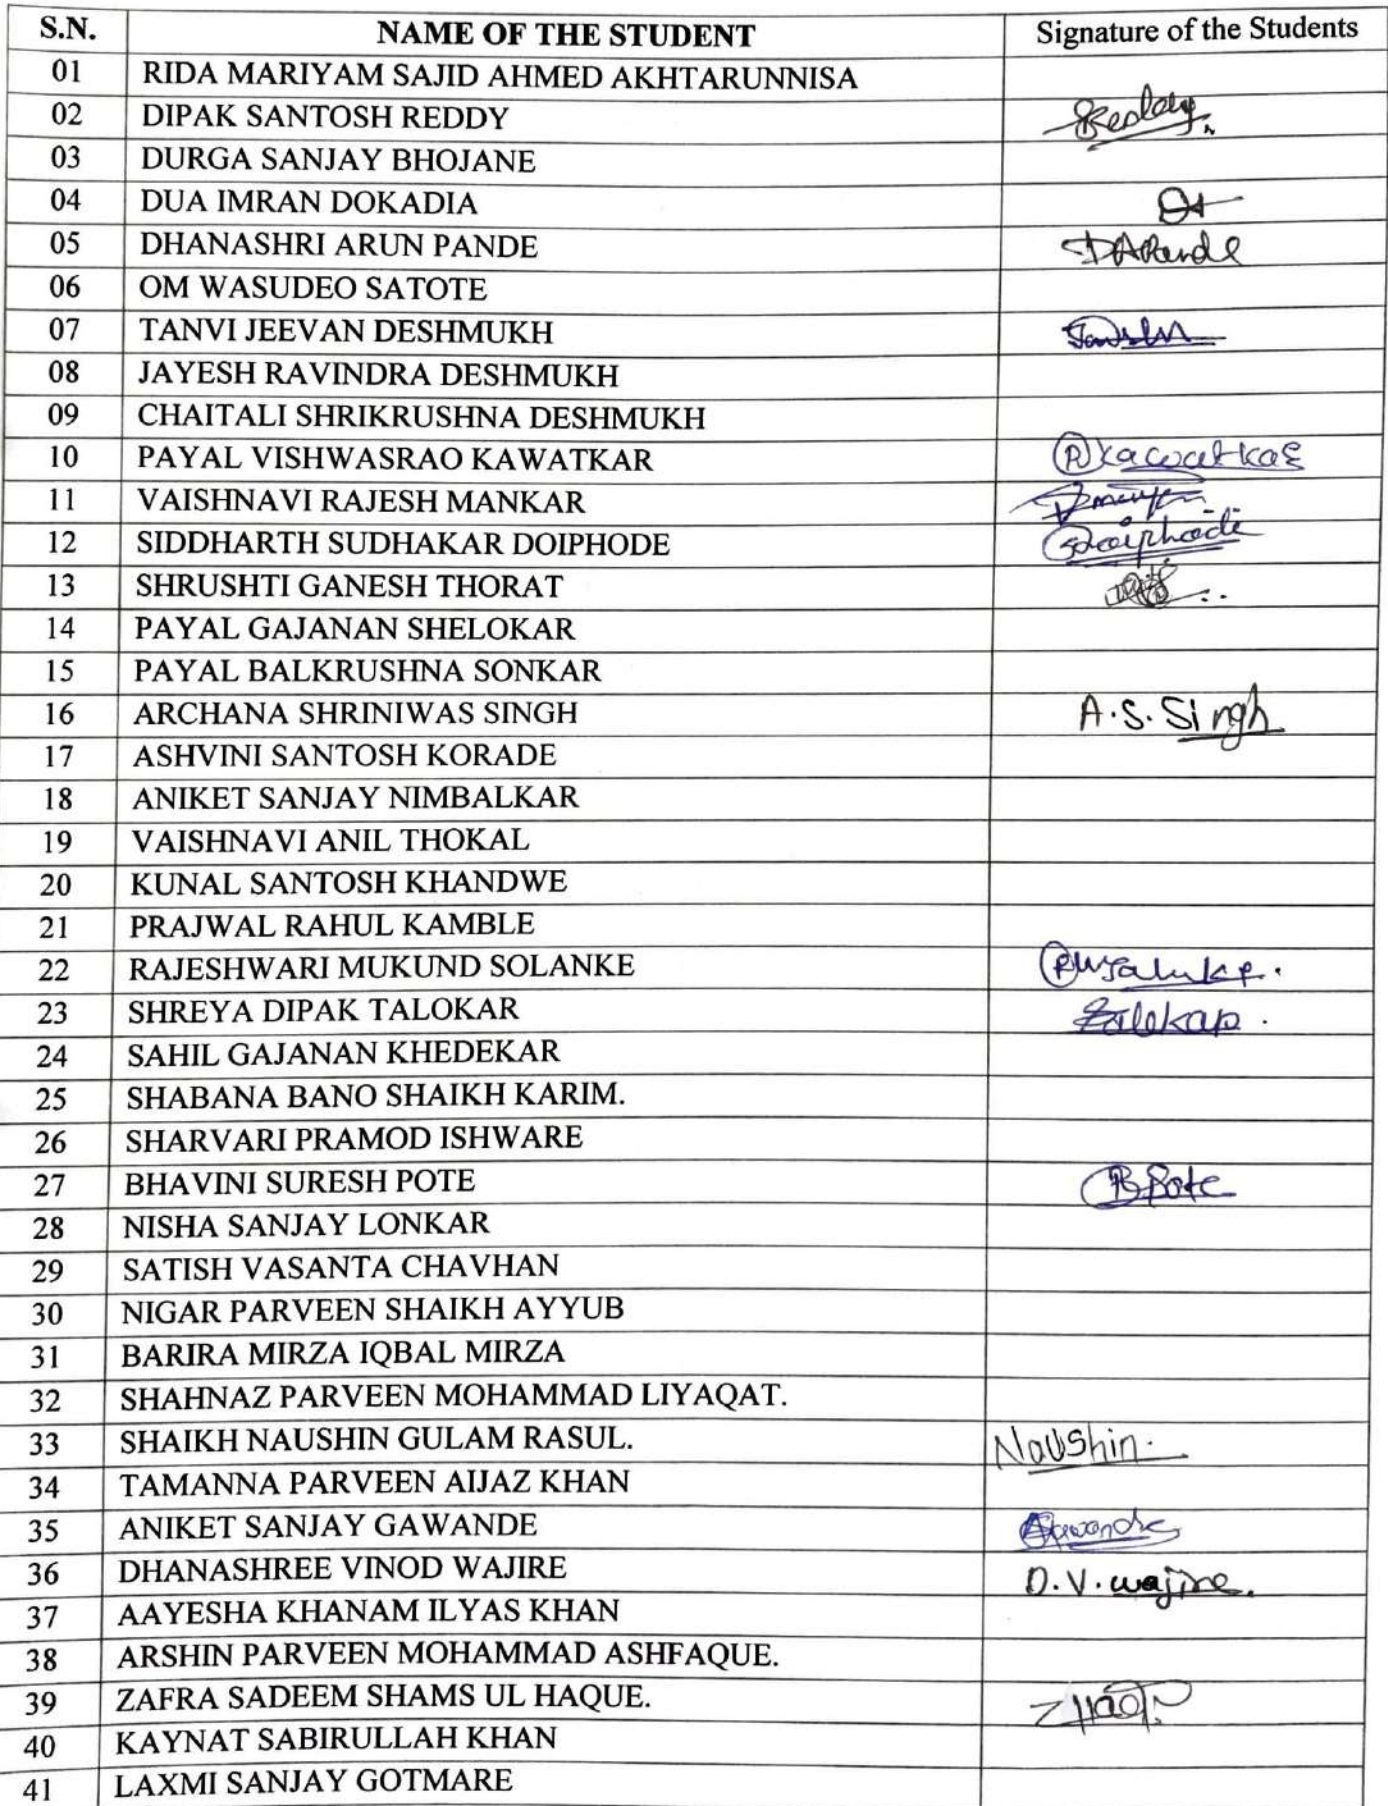 S.N. NAME OF THE STUDENT Signature of the Students
01 RIDA MARIYAM SAJID AHMED AKHTARUNNISA
02 DIPAK SANTOSH REDDY
03 DURGA SANJAY BHOJANE
04 DUA IMRAN DOKADIA
05 DHANASHRI ARUN PANDE DAPande
06 OM WASUDEO SATOTE
07 TANVI JEEVAN DESHMUKH
08 JAYESH RAVINDRA DESHMUKH
09 CHAITALI SHRIKRUSHNA DESHMUKH
10 PAYAL VISHWASRAO KAWATKAR
11 VAISHNAVI RAJESH MANKAR
12 SIDDHARTH SUDHAKAR DOIPHODE
13 SHRUSHTI GANESH THORAT
14 PAYAL GAJANAN SHELOKAR
15 PAYAL BALKRUSHNA SONKAR
16 ARCHANA SHRINIWAS SINGH A.S. Singh
17 ASHVINI SANTOSH KORADE
18 ANIKET SANJAY NIMBALKAR
19 VAISHNAVI ANIL THOKAL
20 KUNAL SANTOSH KHANDWE
21 PRAJWAL RAHUL KAMBLE
22 RAJESHWARI MUKUND SOLANKE
23 SHREYA DIPAK TALOKAR
24 SAHIL GAJANAN KHEDEKAR
25 SHABANA BANO SHAIKH KARIM.
26 SHARVARI PRAMOD ISHWARE
27 BHAVINI SURESH POTE
28 NISHA SANJAY LONKAR
29 SATISH VASANTA CHAVHAN
30 NIGAR PARVEEN SHAIKH AYYUB
31 BARIRA MIRZA IQBAL MIRZA
32 SHAHNAZ PARVEEN MOHAMMAD LIYAQAT.
33 SHAIKH NAUSHIN GULAM RASUL. Naushin.
34 TAMANNA PARVEEN AIJAZ KHAN
35 ANIKET SANJAY GAWANDE
36 DHANASHREE VINOD WAJIRE D.V. wajire.
37 AAYESHA KHANAM ILYAS KHAN
38 ARSHIN PARVEEN MOHAMMAD ASHFAQUE.
39 ZAFRA SADEEM SHAMS UL HAQUE.
40 KAYNAT SABIRULLAH KHAN
41 LAXMI SANJAY GOTMARE